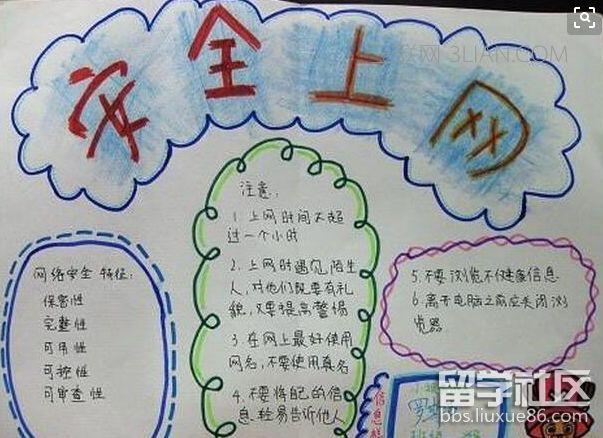 安全上网
联网 3LIAN.COM
注意:
1. 上网时间不超
过一个小时
2. 上网时遇见陌生
人,对他们既要有礼
貌,又要提高警惕
3. 在网上最好使用
网名,不要使用真名
4. 不要将自己的信
息轻易告诉他人
网络安全 特征:
保密性
完整性
可用性
可控性
可审查性
5. 不要浏览不健康信息
6. 离开电脑之前应关闭浏
览器
信息
留学社区
bbs.liuxue86.com